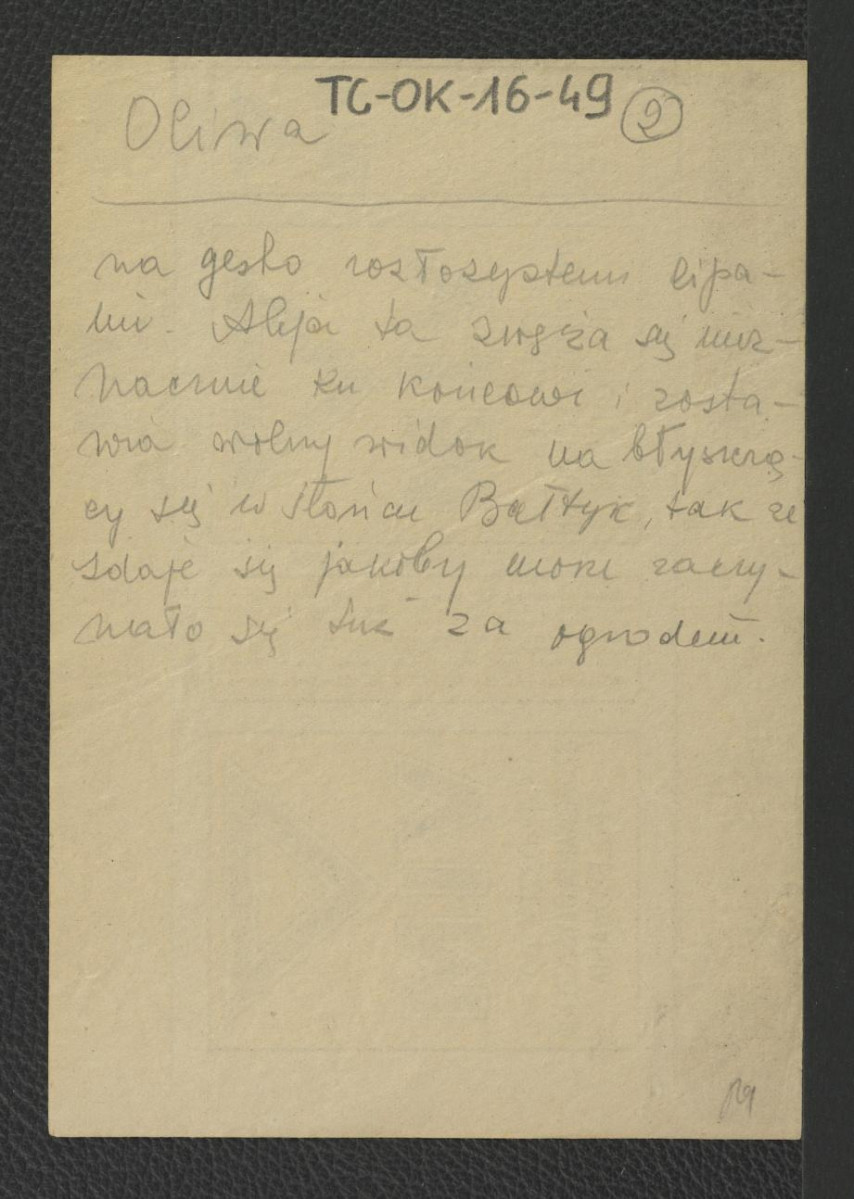 TC-OK-16-49 2
Oliwa
na gęsto rozłożystemi lipa-
mi. Aleja ta zwęża się niez-
nacznie ku końcowi i zosta-
wia wolny widok na błyszczą-
cy się w słońcu Bałtyk, tak że
zdaje się jakoby morze zaczy-
nało się tuż za ogrodem.